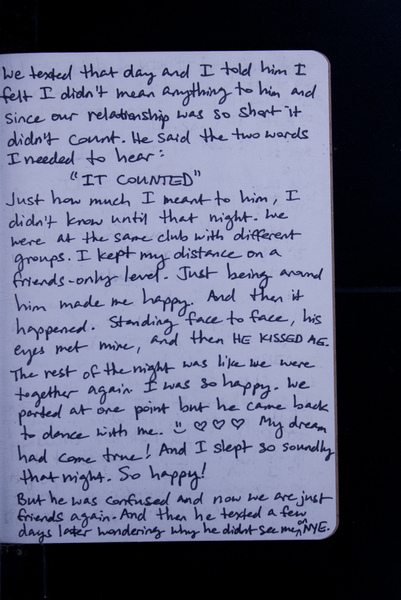 we texted that day and I told him I
felt I didn't mean anything to him and
since our relationship was so short it
didn't count. He said the two words
I needed to hear:
"IT COUNTED"
Just how much I meant to him, I
didn't know until that night. We
were at the same club with different
groups. I kept my distance on a
friends-only level. Just being around
him made me happy. And then it
happened. Standing face to face, his
eyes met mine, and then HE KISSED ME.
The rest of the night was like we were
together again I was so happy. We
parted at one point but he came back
to dance with me. :) ♡♡♡ My dream
had come true! And I slept so soundly
that night. So happy!
But he was confused and now we are just
friends again. And then he texted a few
days later wondering why he didnt see me on NYE.